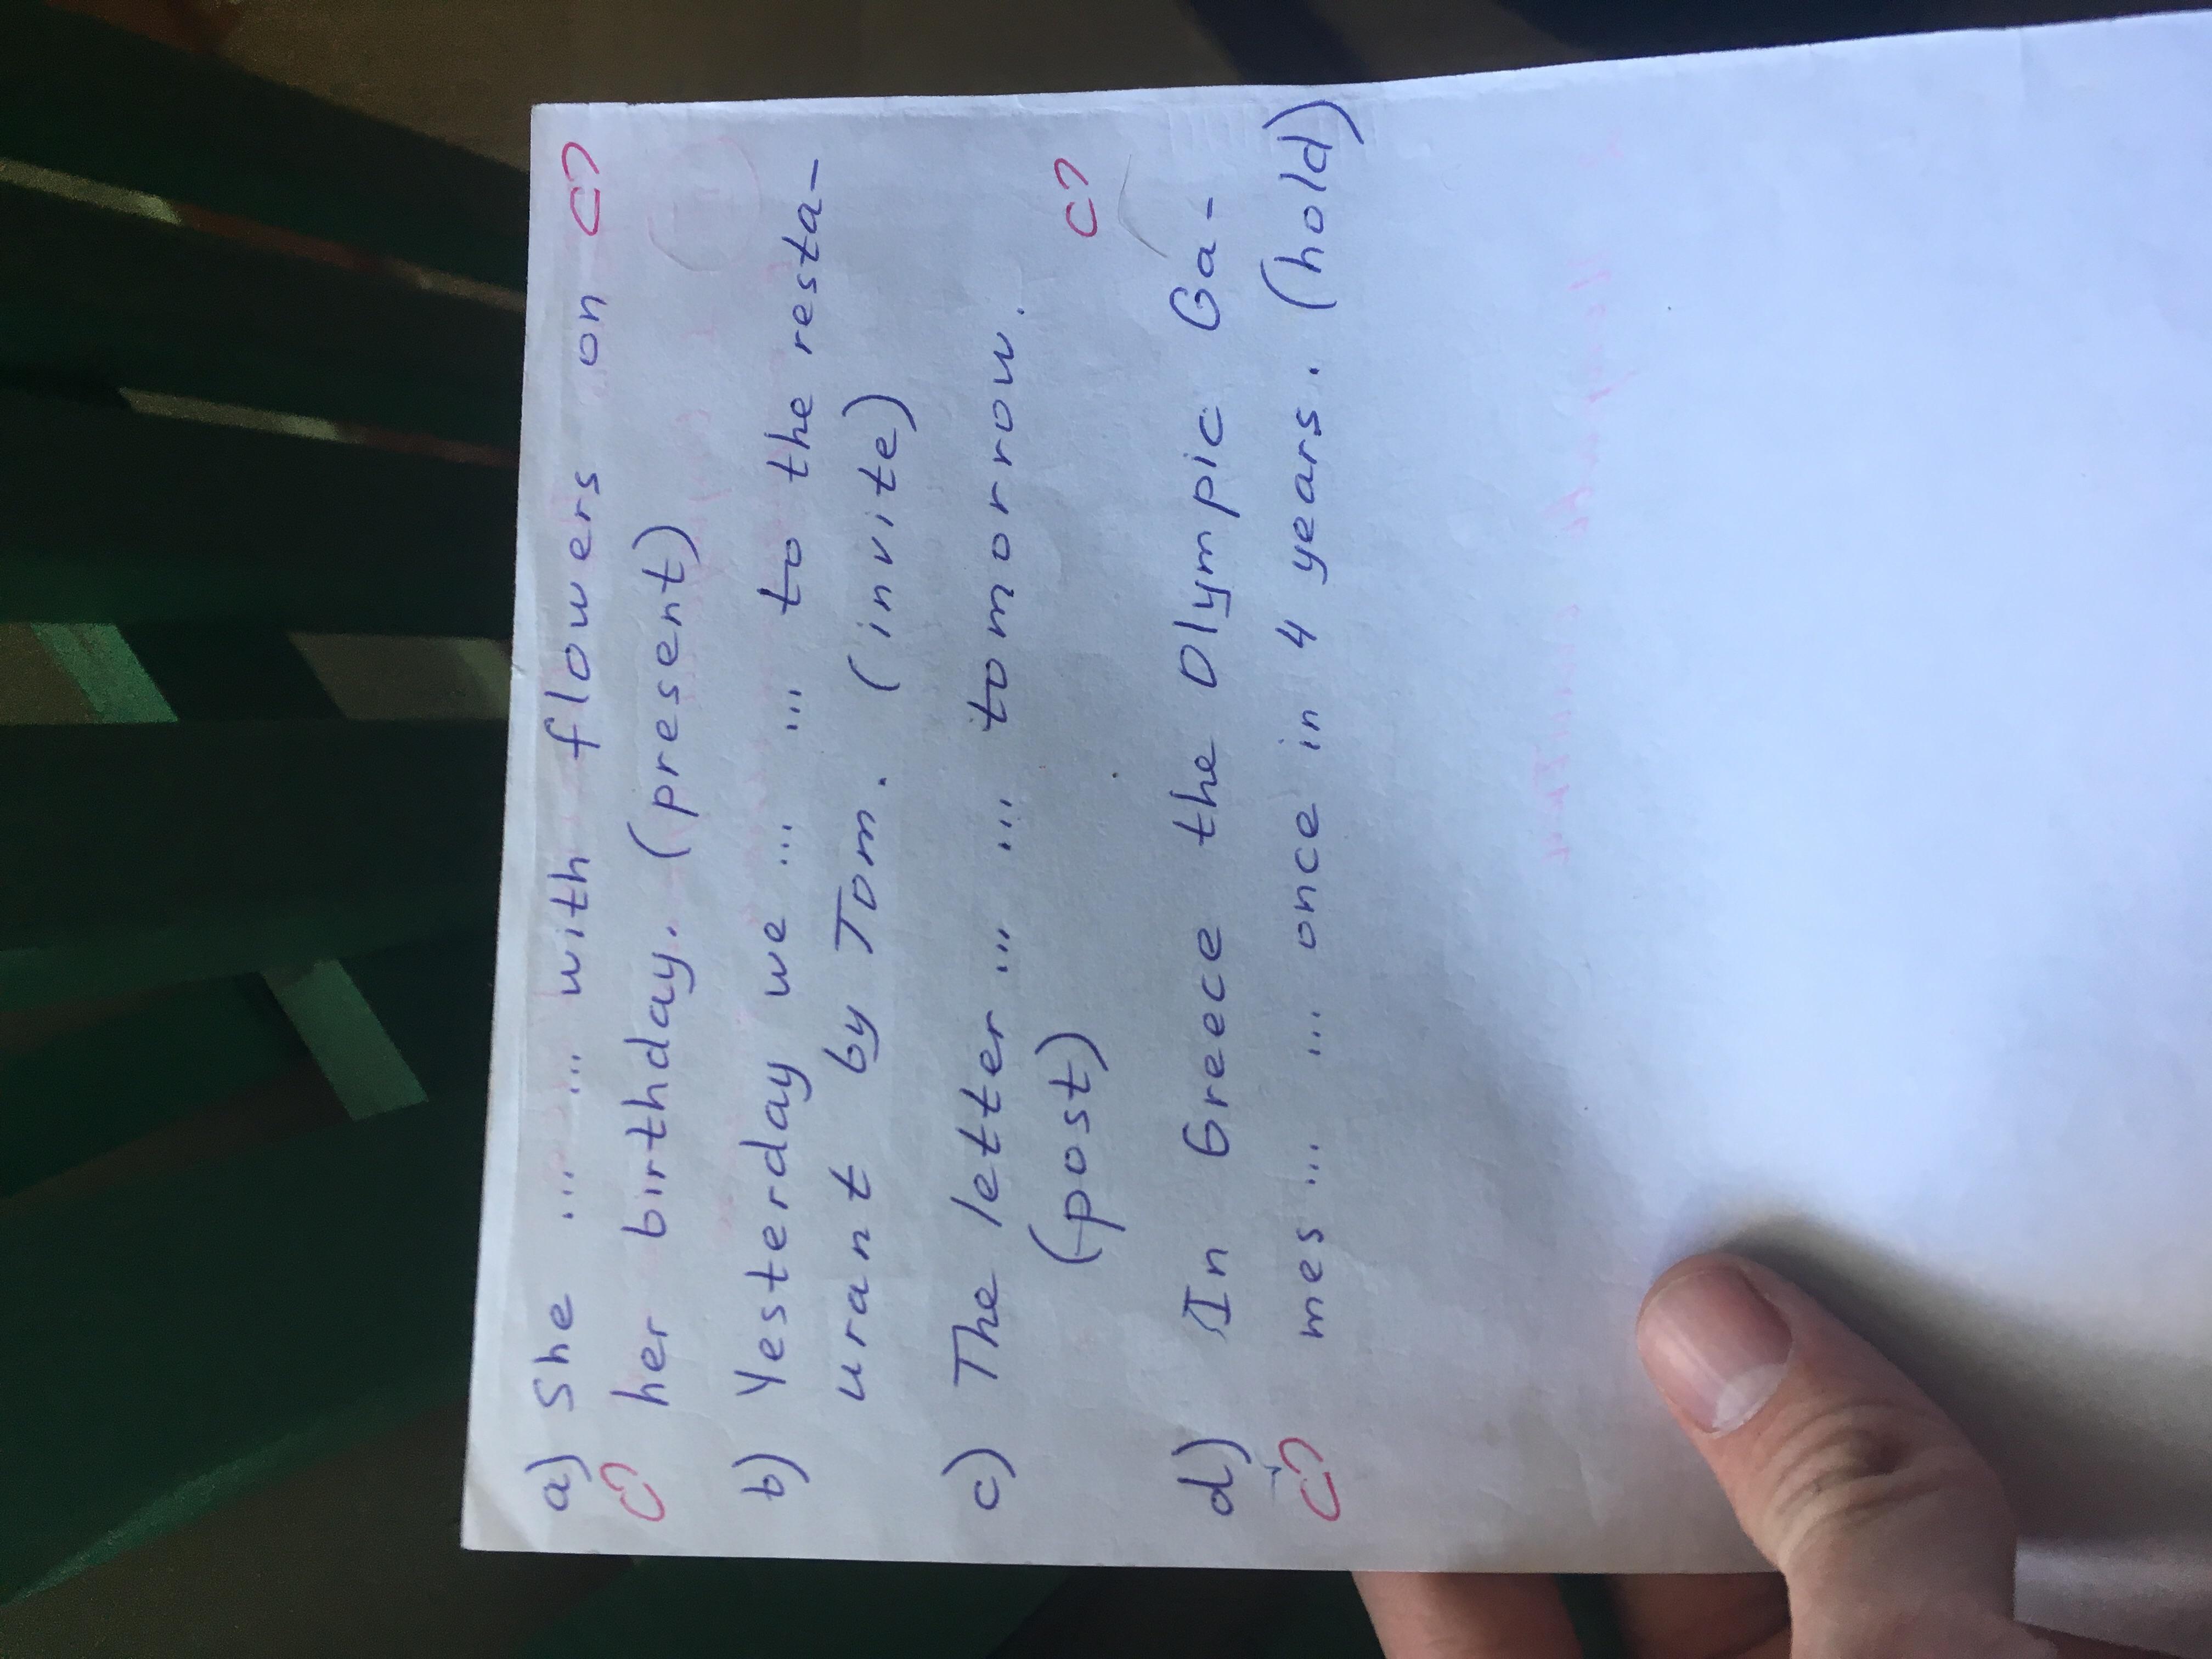 a) She ... ... with flowers on
her birthday. (present)
b) Yesterday we ... ... to the resta-
urant by Tom. (invite)
c) The letter ... ... ... tomorrow.
(post)
d) In Greece the Olympic Ga-
mes ... ... once in 4 years. (hold)